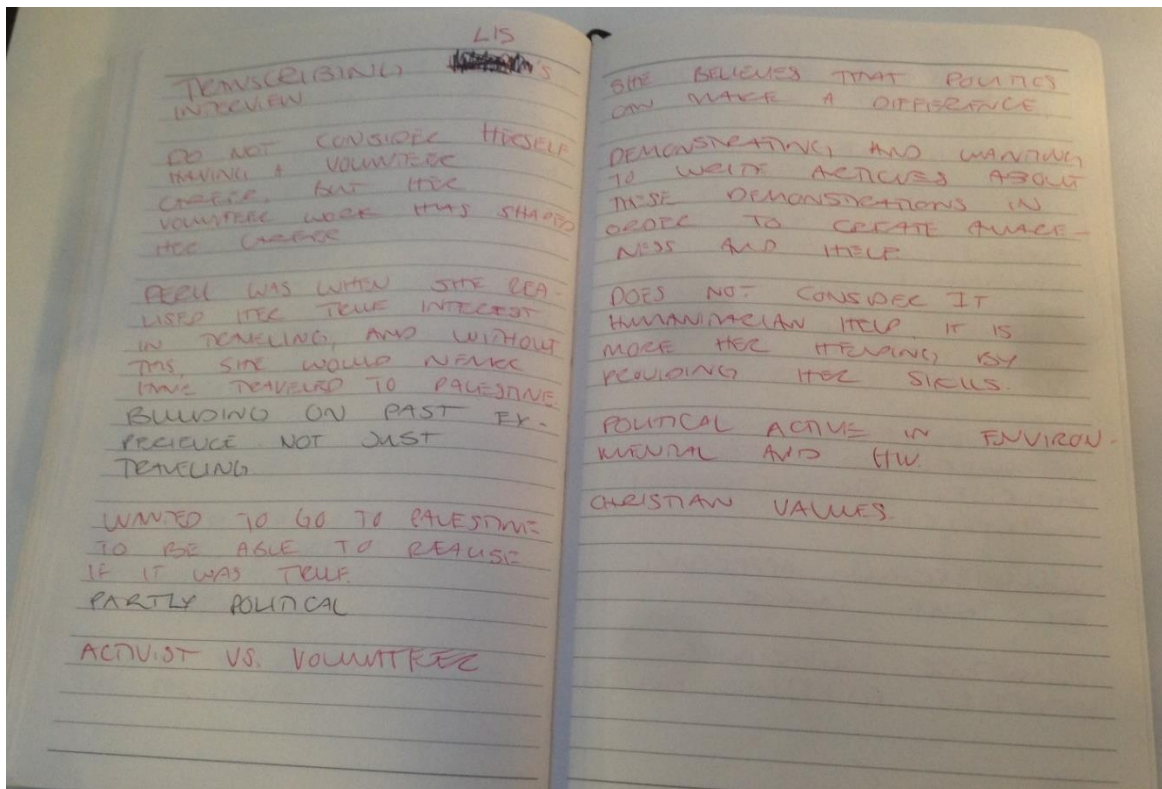 LIS
TRANSCRIBING 's
INTERVIEW
DO NOT CONSIDER HERSELF
HAVING A VOLUNTEER
CAREER, BUT HER
VOLUNTEER WORK HAS SHAPED
HER CAREER
PERU WAS WHEN SHE REA-
LISED HER TRUE INTEREST
IN TRAVELING, AND WITHOUT
THIS, SHE WOULD NEVER
HAVE TRAVELED TO PALESTINE.
BUILDING ON PAST EX-
PERIENCE NOT JUST
TRAVELING
WANTED TO GO TO PALESTINE
TO BE ABLE TO REALISE
IF IT WAS TRUE.
PARTLY POLITICAL
ACTIVIST VS. VOLUNTEER
SHE BELIEVES THAT POLITICS
CAN MAKE A DIFFERENCE.
DEMONSTRATING AND WANTING
TO WRITE ARTICLES ABOUT
THESE DEMONSTRATIONS IN
ORDER TO CREATE AWARE-
NESS AND HELP
DOES NOT CONSIDER IT
HUMANITARIAN HELP. IT IS
MORE HER HELPING BY
PROVIDING HER SKILLS.
POLITICAL ACTIVE IN ENVIRON-
MENTAL AND HW.
CHRISTIAN VALUES.